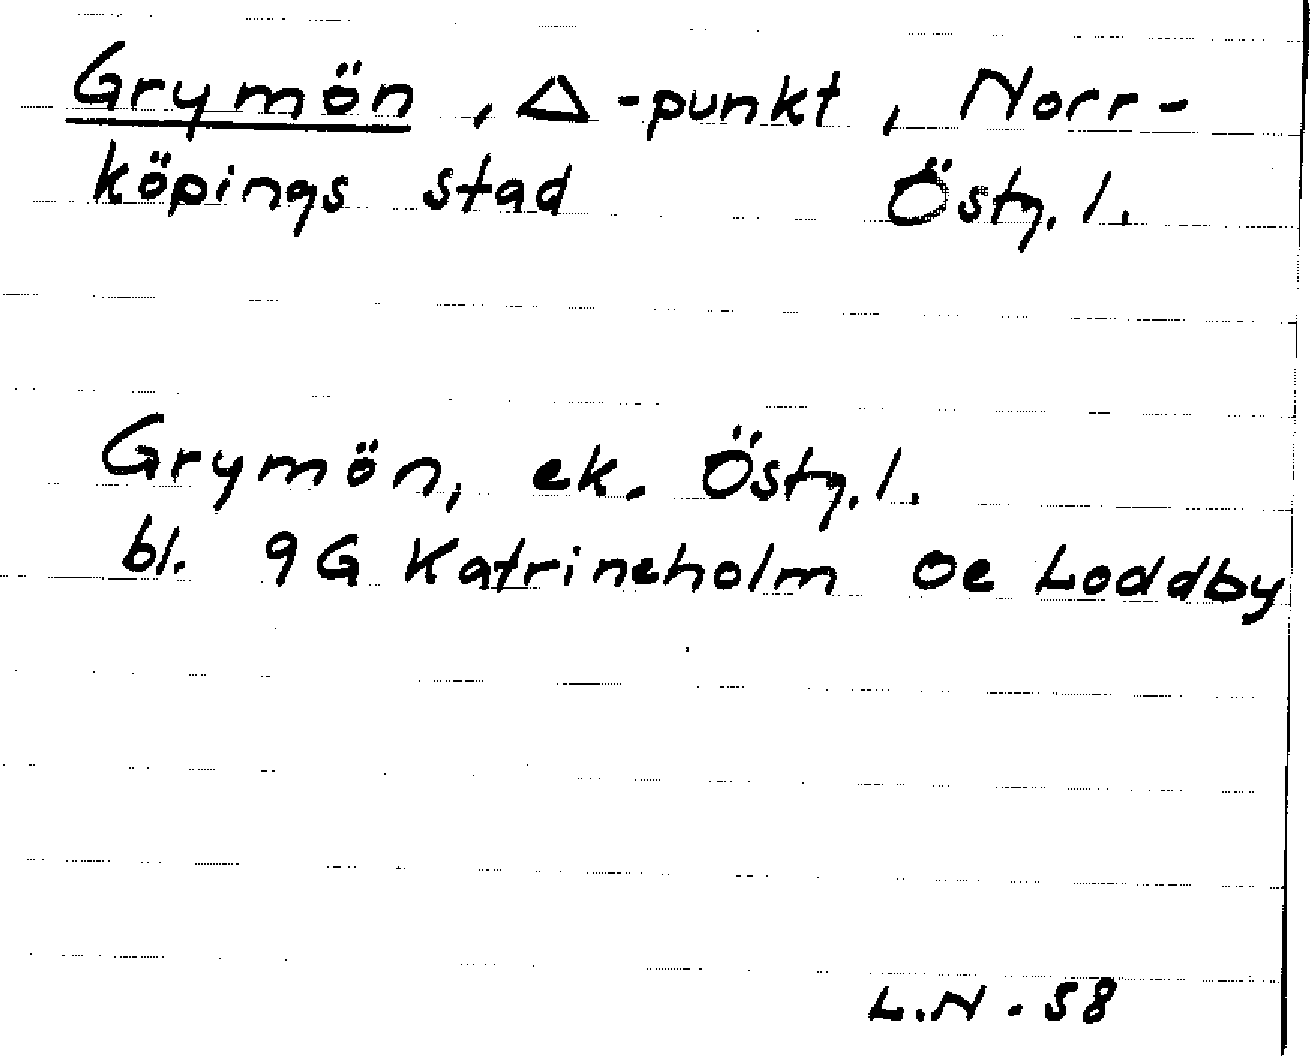 Grymön, Δ-punkt, Norr-
köpings stad Östg. l.
Grymön, ek. Östg. l.
bl. 9G Katrineholm Oe Loddby
L.N. 58